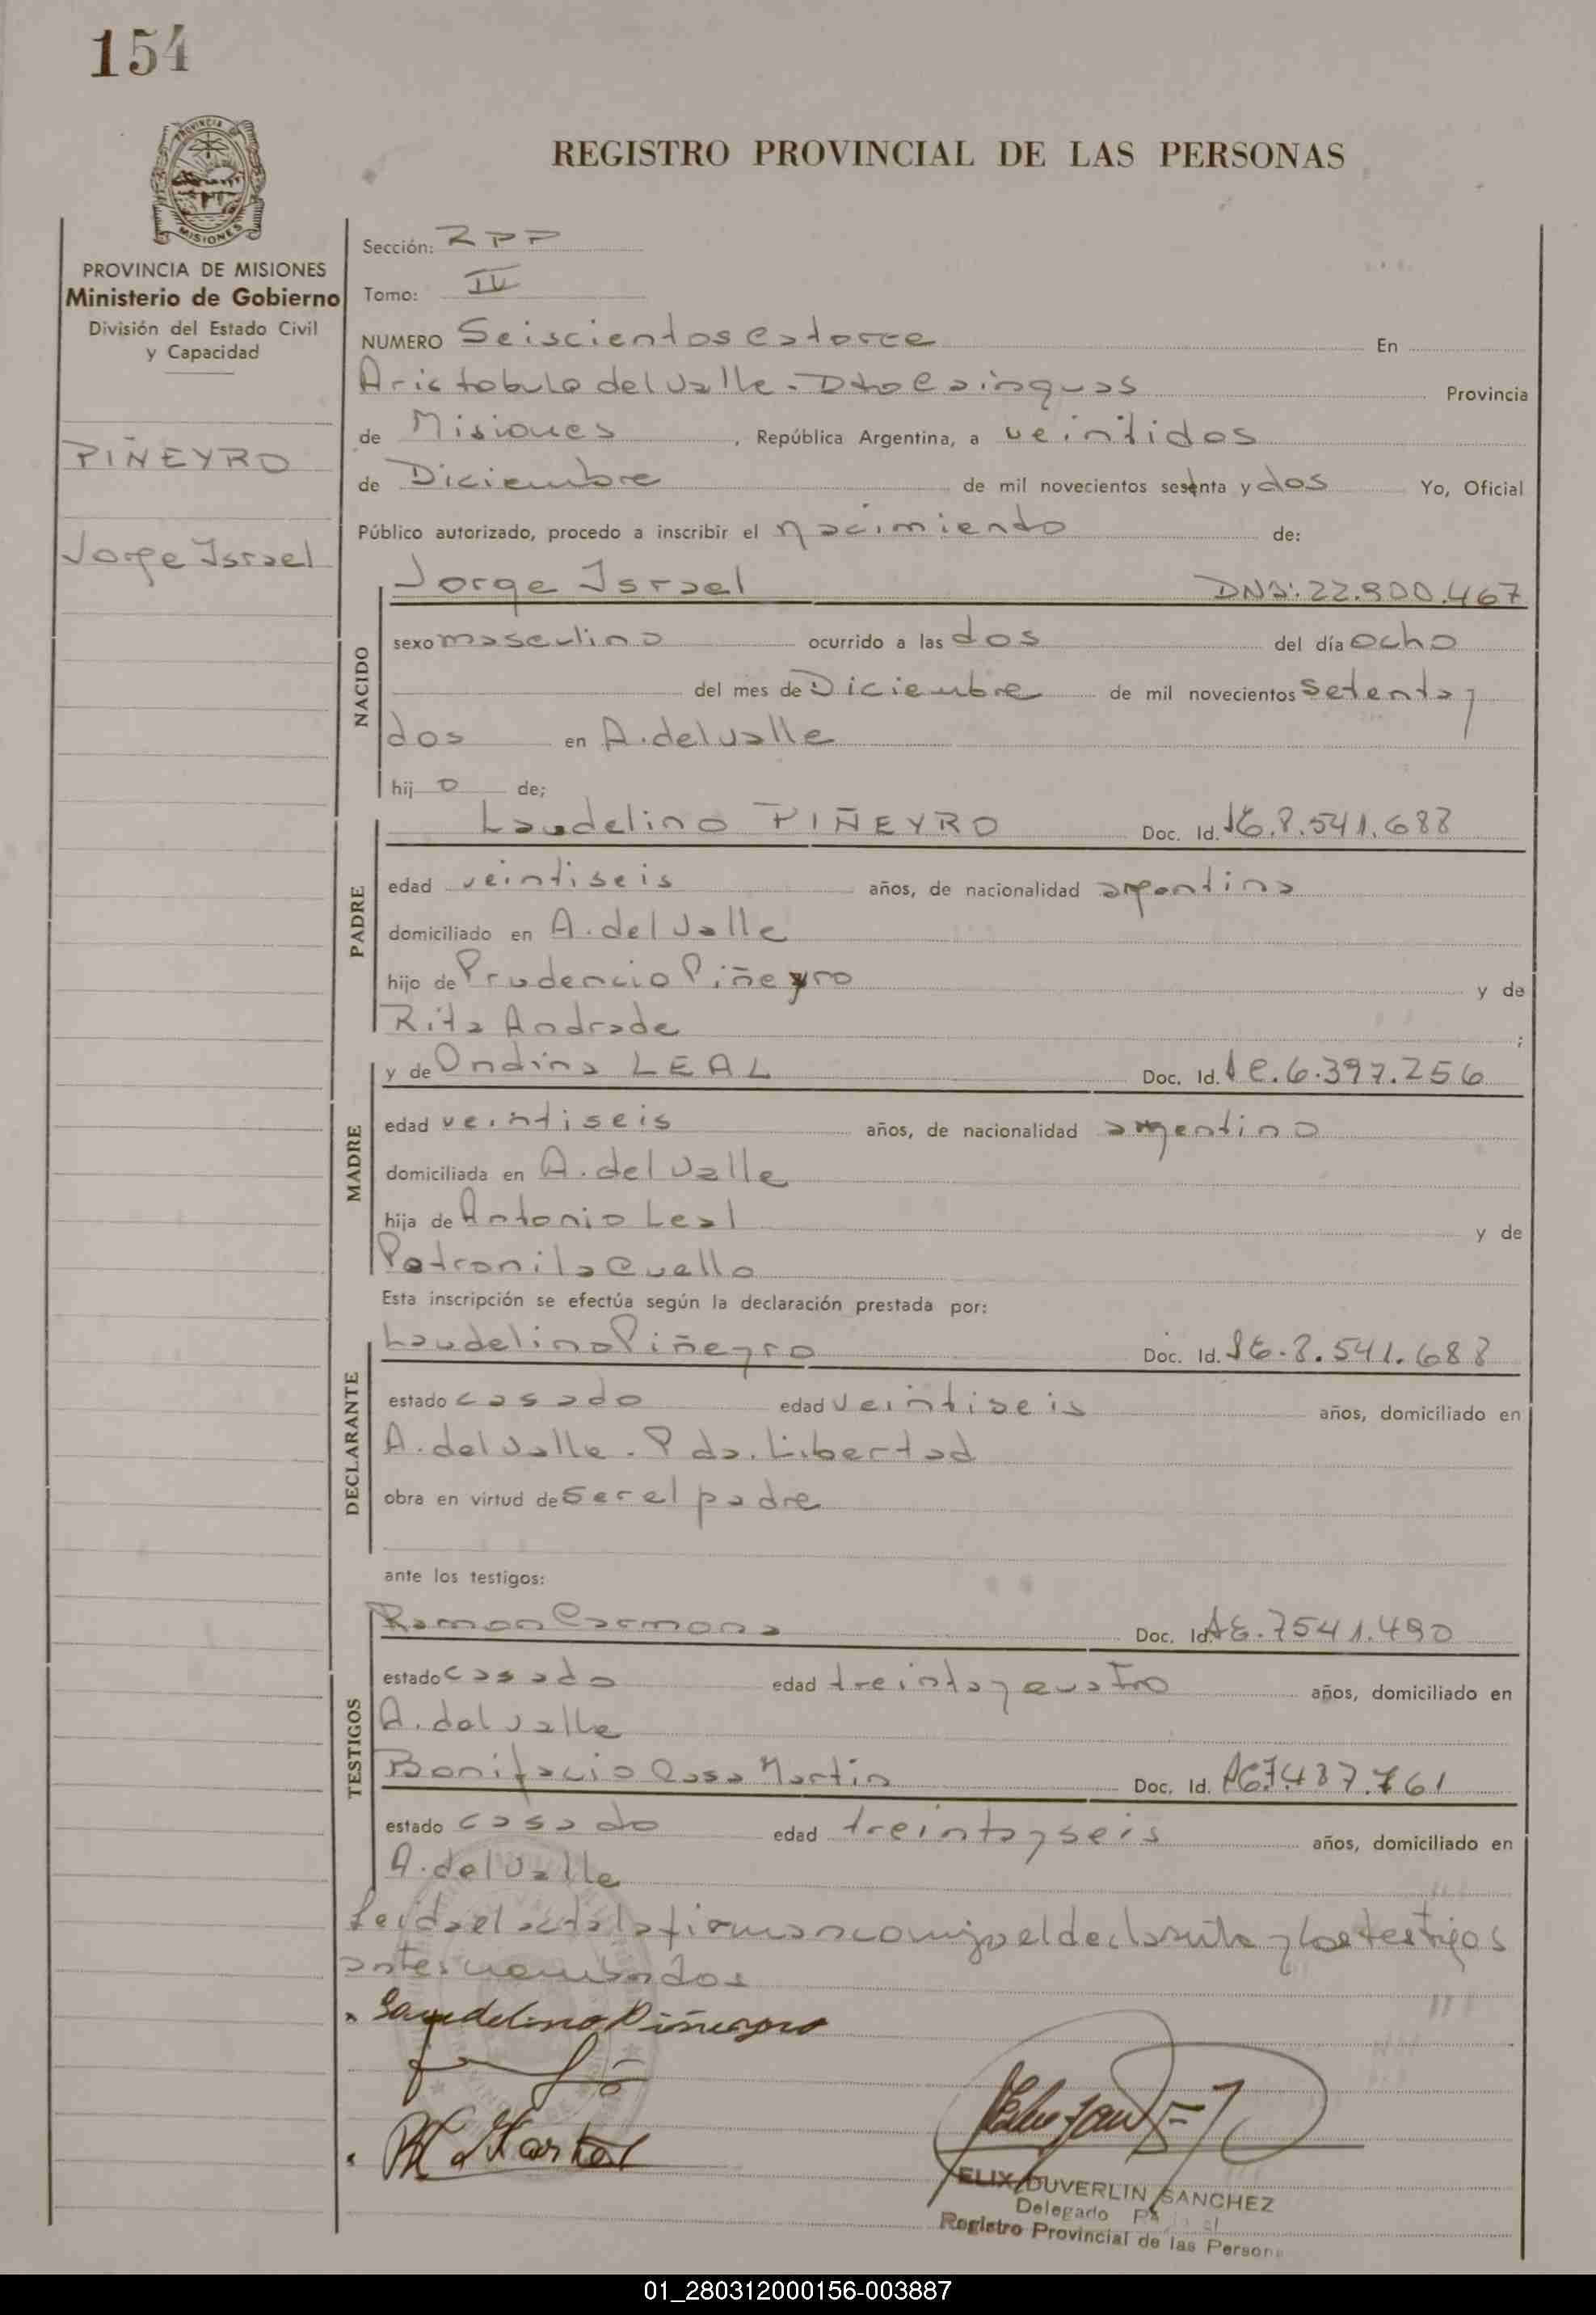 154
REGISTRO PROVINCIAL DE LAS PERSONAS
MISIONES
PROVINCIA DE MISIONES
Ministerio de Gobierno
División del Estado Civil
y Capacidad
PIÑEYRO
Jorge Israel
Sección: RPP
Tomo: IV
NUMERO Seiscientos catorce En
Aristobulo del Valle - Dto Cainguas Provincia
de Misiones, República Argentina, a veintidos
de Diciembre de mil novecientos sesenta y dos Yo, Oficial
Público autorizado, procedo a inscribir el nacimiento de:
NACIDO
Jorge Israel DNI: 22.900.467
sexo masculino ocurrido a las dos del día ocho
del mes de Diciembre de mil novecientos setenta y
dos en A. del Valle
hijo de;
PADRE
Laudelino PIÑEYRO Doc. Id. 8.541.688
edad veintiseis años, de nacionalidad argentina
domiciliado en A. del Valle
hijo de Prudencio Piñeyro y de
Rita Andrade ;
MADRE
y de Ondina LEAL Doc. Id. 6.397.256
edad veintiseis años, de nacionalidad argentina
domiciliada en A. del Valle
hija de Antonio Leal y de
Petronila Cuello
Esta inscripción se efectúa según la declaración prestada por:
DECLARANTE
Laudelino Piñeyro Doc. Id. 8.541.688
estado casado edad veintiseis años, domiciliado en
A. del Valle - Pda. Libertad
obra en virtud de ser el padre
ante los testigos:
TESTIGOS
Ramon Carmona Doc. Id. 7541.490
estado casado edad treinta y cuatro años, domiciliado en
A. del Valle
Bonifacio Casa Martin Doc. Id. 7.487.761
estado casado edad treinta y seis años, domiciliado en
A. del Valle
Leida el acta la firman conmigo el declarante y los testigos
antes nombrados
Laudelino Piñeyro
ELIX DUVERLIN SANCHEZ
Delegado
Registro Provincial de las Persona
01_280312000156-003887